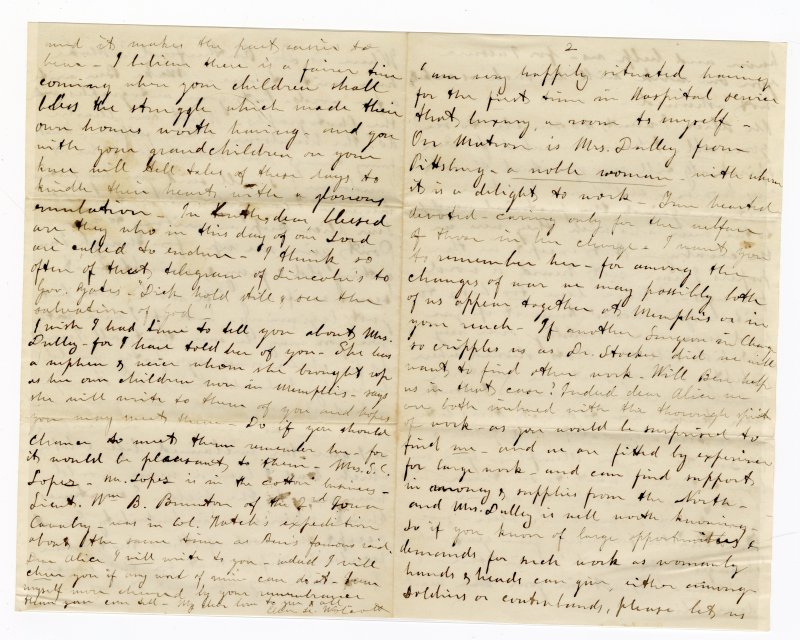 and it makes the part easier to
bear - I believe there is a fairer time
coming when your children shall
bless the struggle which made their
own homes worth having - and you
with your grandchildren on your
knee will tell tales of these days to
kindle their hearts with a glorious
emulation - In truth, dear blessed
are they who in this day of our Lord
are called to endure - I think so
often of that telegram of Lincoln's to
Gov. Yates - "Dick hold still & see the
salvation of God."
I wish I had time to tell you about Mrs.
Dulley - for I have told her of you - She has
a nephew & niece whom she brought up
as her own children now in Memphis - says
she will write to them of you and hopes
you may meet them - Do if you should
chance to meet them remember her - for
it would be pleasant to them - Mrs. S. C.
Lopez - Mr. Lopez is in the cotton business -
Lieut. Wm B. Brunton of the 2nd Iowa
Cavalry - was in Col. Hatch's expedition
about the same time as Ben's famous raid.
Dear Alice I will write to you - indeed I will
cheer you if any word of mine can do it - I am
myself more cheered by your remembrance
than you can tell - My dear love to you & all
2
I am very happily situated having
for the first time in Hospital service
that luxury, a room to myself -
Our Matron is Mrs. Dulley from
Pittsburg - a noble woman - with whom
it is a delight to work - True hearted
devoted - caring only for the welfare
of those in her charge - I want you
to remember her - for among the
changes of war we may possibly both
of us appear together at Memphis or in
your reach - If another Surgeon in Charge
so cripples us as Dr. Stocker did we will
want to find other work - Will Ben help
us in that case? Indeed dear Alice we
are both imbued with the thorough spirit
of work - as you would be surprised to
find me - and we are fitted by experience
for large work - and can find support
in money & supplies from the North -
and Mrs. Dulley is well worth knowing -
So if you know of large opportunities &
demands for such work as womanly
hands & heads can give, either among
soldiers or contrabands, please let us